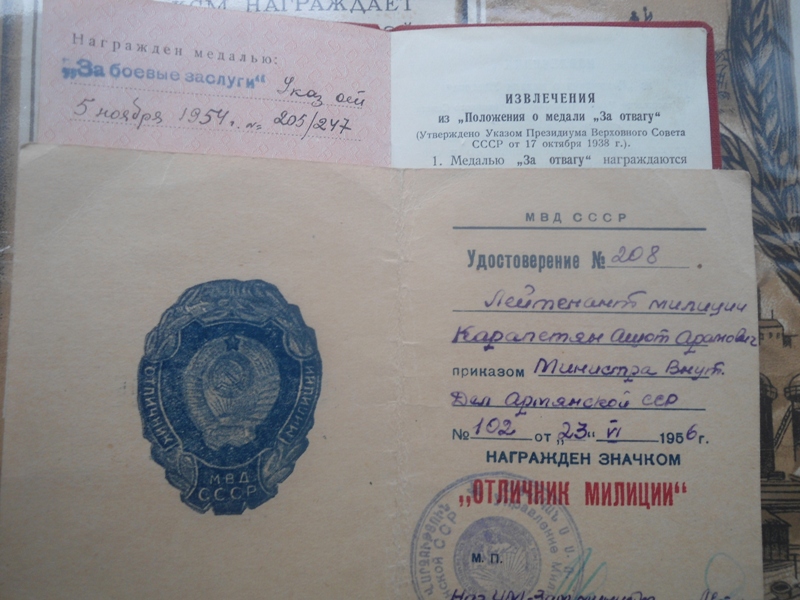 КОМ НАГРАЖДАЕТ
Награжден медалью:
„За боевые заслуги“ Указ от
5 ноября 1954 г. № 205/247
ИЗВЛЕЧЕНИЯ
из „Положения о медали „За отвагу“
(Утверждено Указом Президиума Верховного Совета
СССР от 17 октября 1938 г.).
1. Медалью „За отвагу“ награждаются
ОТЛИЧНИК
МИЛИЦИИ
МВД
СССР
МВД СССР
Удостоверение № 208.
Лейтенант милиции
Карапетян Ашот Арамович
приказом Министра Внут.
Дел Армянской ССР
№ 102 от „23“ VI 1956 г.
НАГРАЖДЕН ЗНАЧКОМ
„ОТЛИЧНИК МИЛИЦИИ“
Управление
ССР
М. П.